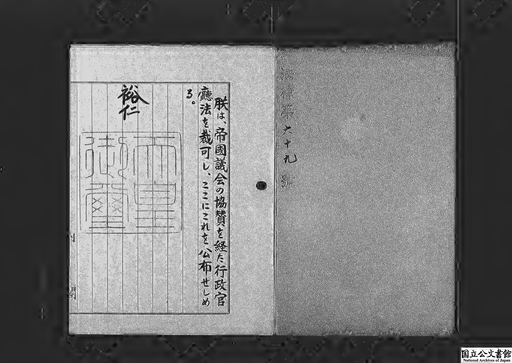 法律第六十九號
朕は、帝國議会の協賛を経た行政官
廳法を裁可し、ここにこれを公布せしめ
る。
裕仁
天皇
御璽
国立公文書館
National Archives of Japan